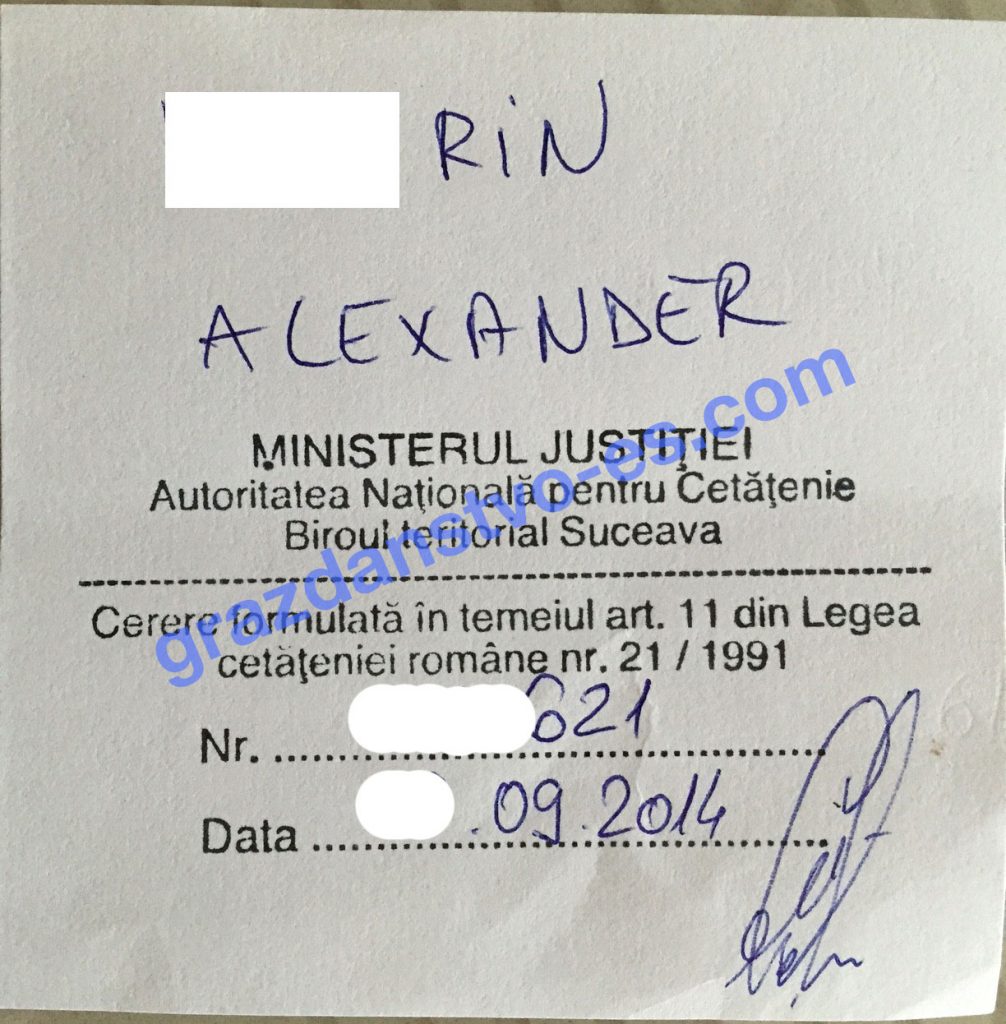 RIN
ALEXANDER
MINISTERUL JUSTIŢIEI
Autoritatea Naţională pentru Cetăţenie
Biroul teritorial Suceava
Cerere formulată în temeiul art. 11 din Legea
cetăţeniei române nr. 21 / 1991
Nr. ........ 621
Data ........ .09.2014
grazdanstvo-es.com